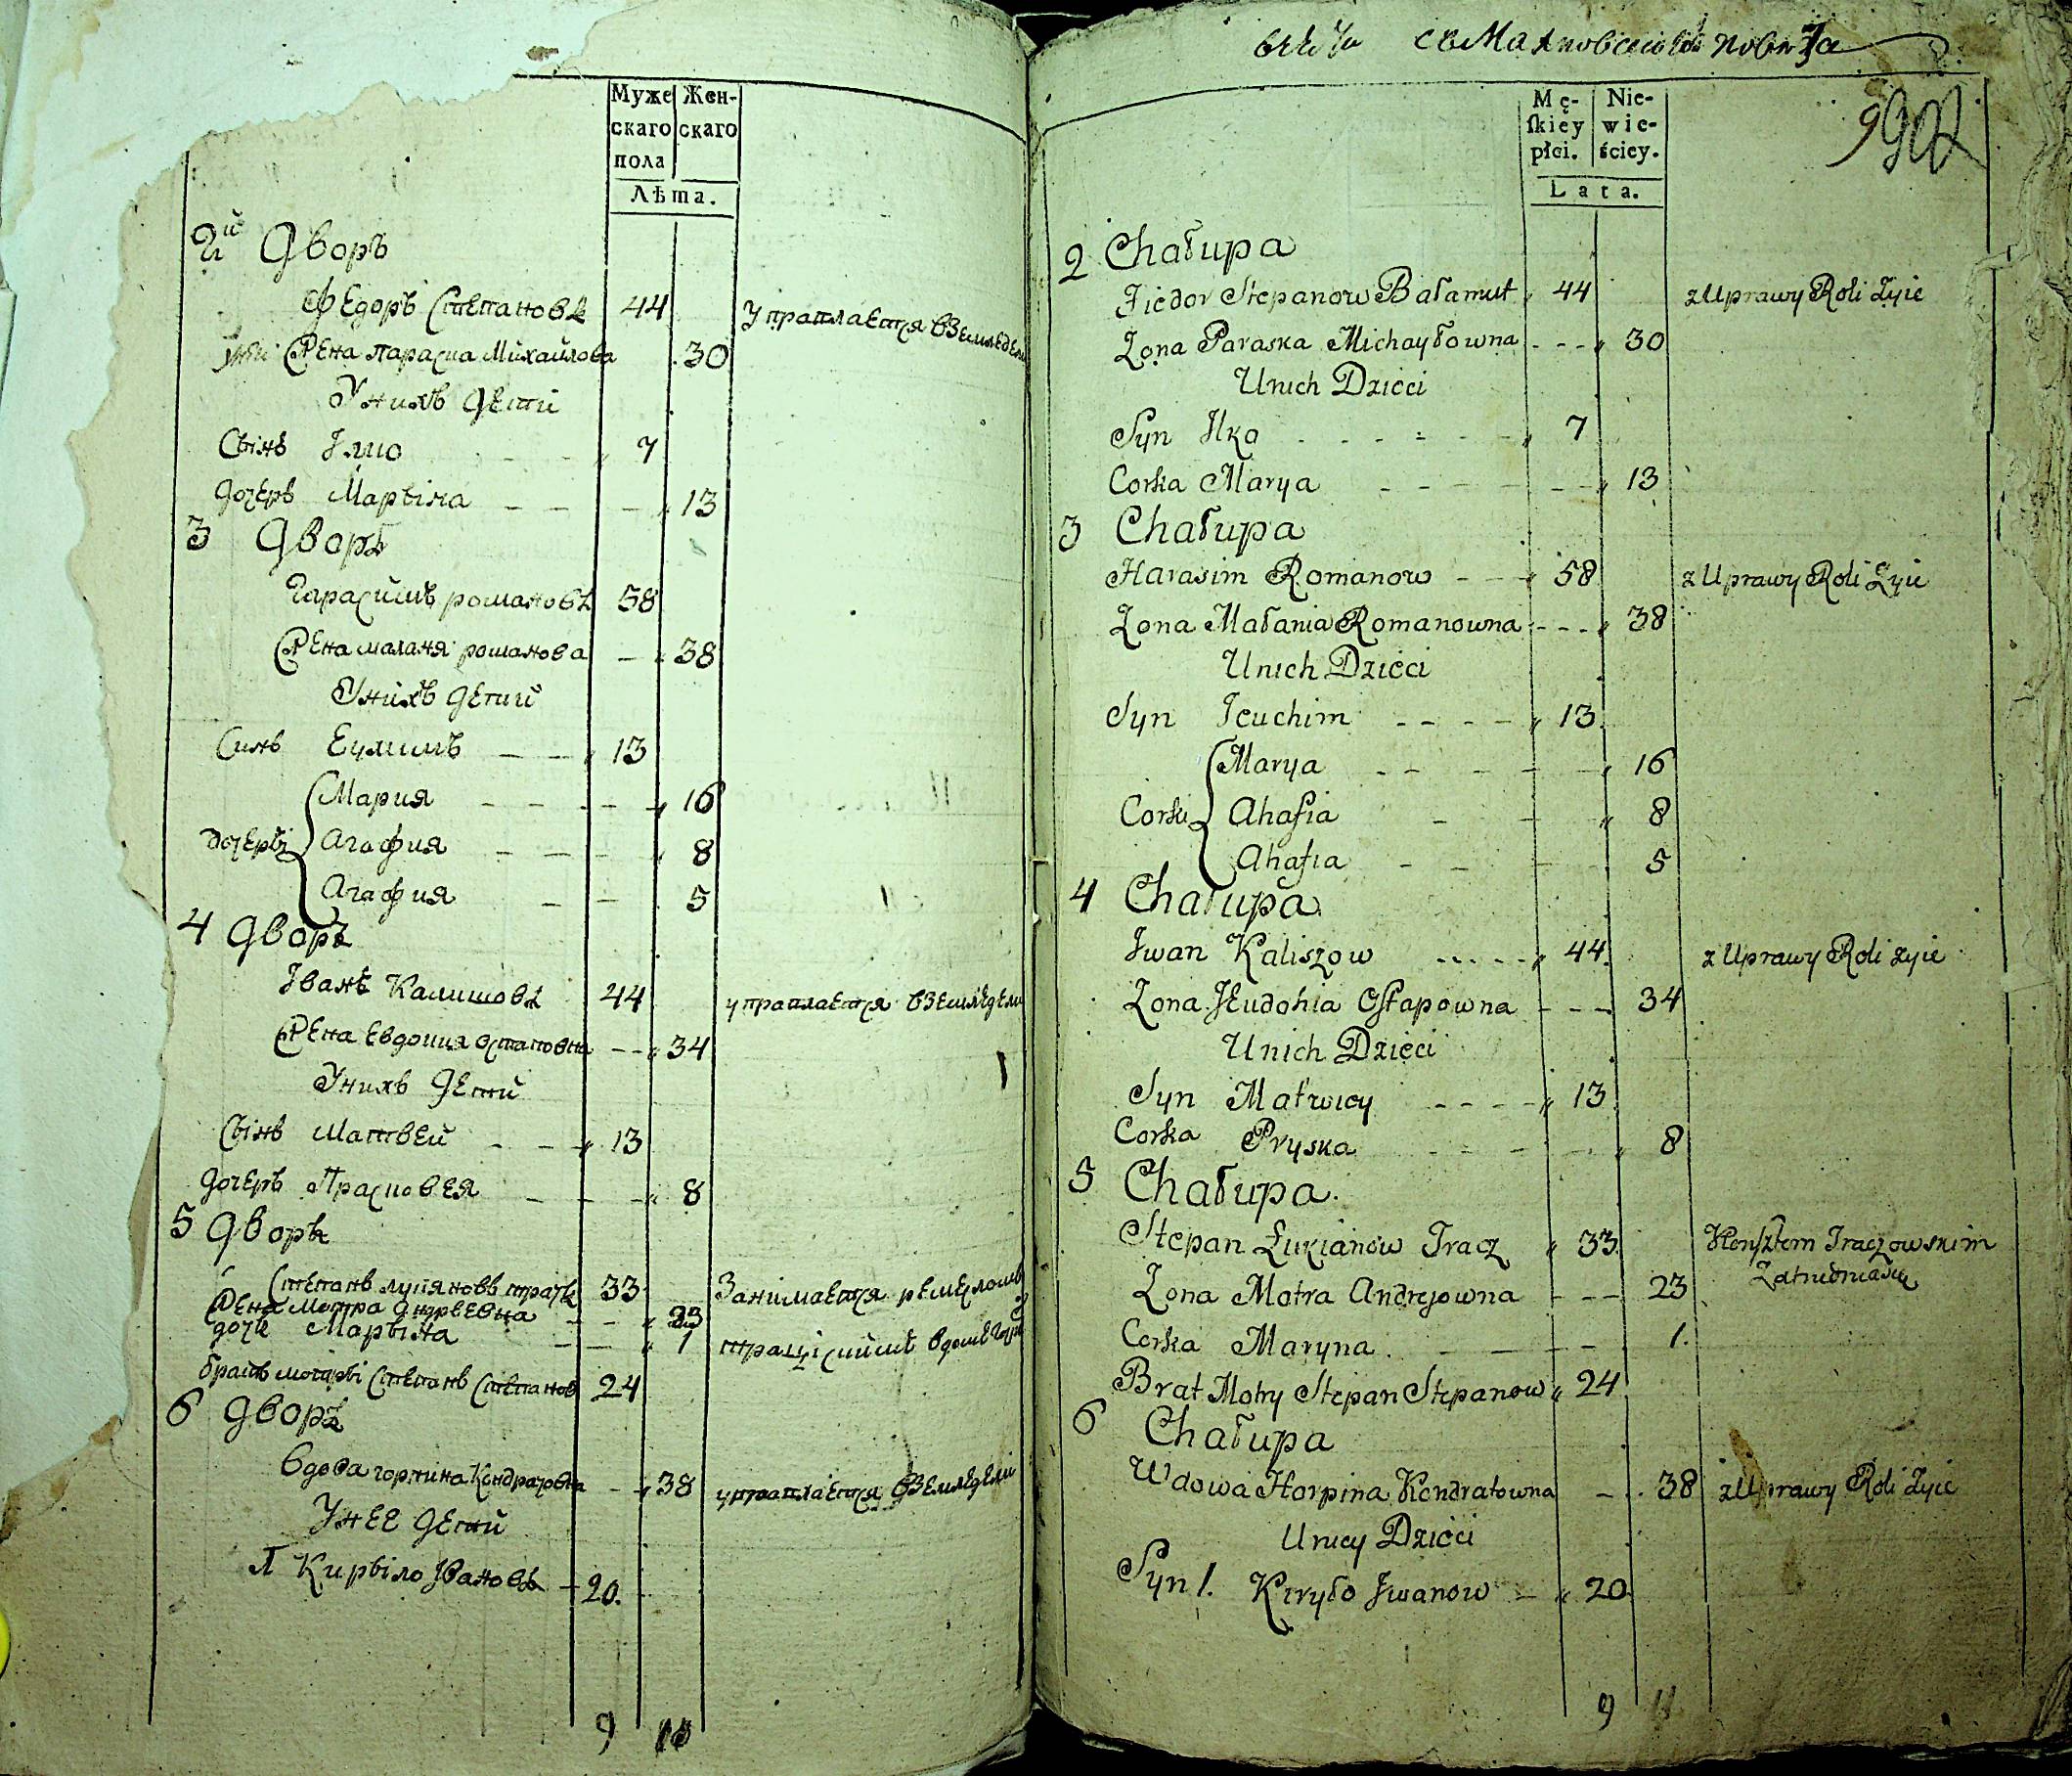 Муже Жен-
скаго скаго
пола
Лѣта.
2й Дворъ
Федоръ Степановъ 44 упраплается вземледели
Жена параска Михайлова 30
Унихъ дети
Сынъ Илко 7
дочеръ Марына 13
3 Дворъ
Гарасимъ романовъ 58
Жена маланя романова 38
Унихъ детий
Синъ Еухимъ 13
Мария 16
дочеръі Агафия 8
Агафия 5
4 дворъ
Іванъ Калишовъ 44 упраплается вземледели
Жена Евдокия остаповна 34
Унихъ детий
Сынъ Матвей 13
дочеръ Прасковея 8
5 дворъ
Степанъ лукяновъ трачъ 33 Занимается ремесломъ
Жена Мотра Андреевна 23
дочъ Марына 1
братъ мотръі Степанъ Степанов 24
6 дворъ
вдова горпина Кондратовна 38 упраплается вземледели
Унее детий
Кирыло Ивановъ 20
9 11
Mę- Nie-
ſkiey wie-
płci. ściey.
Lata.
2 Chałupa
Fiedor Stepanow Bałamut 44 z Uprawy Roli Żyie
Żona Paraska Michayłowna 30
Unich Dzieci
Syn Ilko 7
Corka Marya 13
3 Chałupa
Harasim Romanow 58 z Uprawy Roli Żyie
Żona Małania Romanowna 38
Unich Dzieci
Syn Jeuchim 13
Marya 16
Corki Ahafia 8
Ahafia 5
4 Chałupa
Jwan Kaliszow 44 z Uprawy Roli żyie
Żona Jeudohia Ostapowna 34
Unich Dzieci
Syn Matwiey 13
Corka Pryska 8
5 Chałupa.
Stepan Łukianow Tracz 33 Konsztem Traczowskim
Zatrudnia się
Żona Motra Andrejowna 23
Corka Maryna 1.
Brat Motry Stepan Stepanow 24
6 Chałupa
Wdowa Horpina Kondratowna 38 z Uprawy Roli Żyie
Uniey Dzieci
Syn 1. Kiryło Jwanow 20
9 11